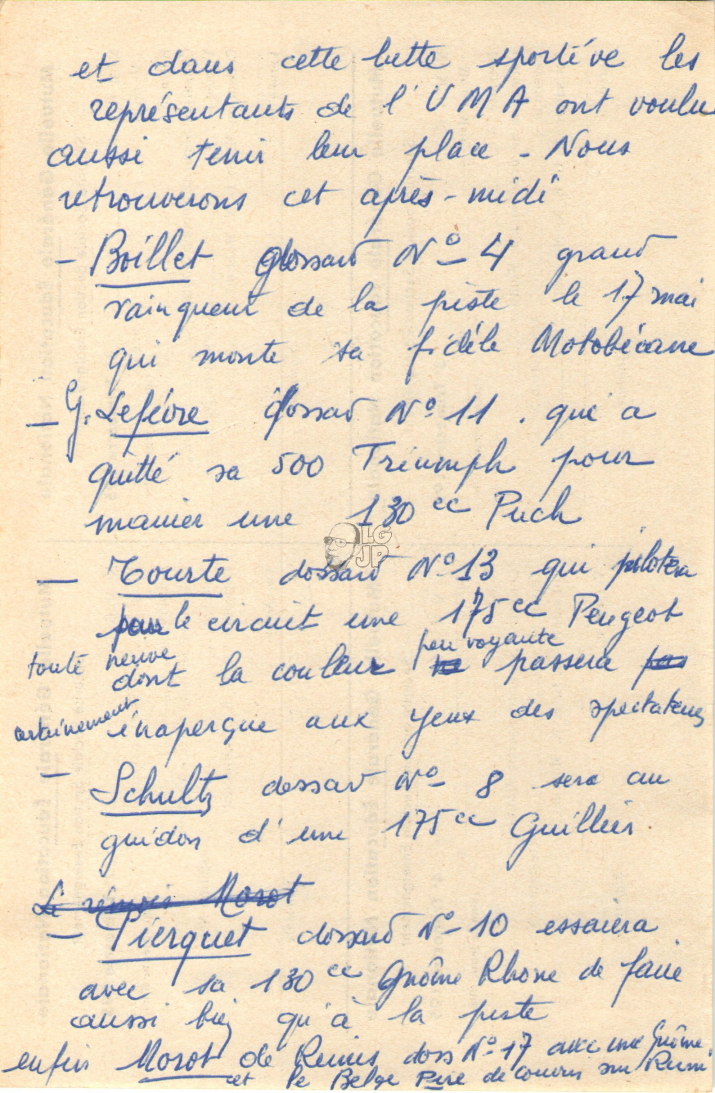 et dans cette lutte sportive les
représentants de l'UMA ont voulu
aussi tenir leur place - Nous
retrouverons cet après-midi
- Boillet dossard N° 4 grand
vainqueur de la piste le 17 mai
qui monte sa fidèle Motobécane
- G. Lefèvre dossard N° 11 . qui a
quitté sa 500 Triumph pour
manier une 130 cc Puch
LG
JP
- Tourte dossard N° 13 qui pilotera
pour le circuit une 175 cc Peugeot
toute neuve
dont la couleur peu voyante passera pas
certainement inaperçue aux yeux des spectateurs
- Schultz dossard N° 8 sera au
guidon d'une 175 cc Guiller.
Le rémois Morot
- Pierquet dossard N° 10 essaiera
avec sa 130 cc Gnôme Rhone de faire
aussi bien qu'à la piste
enfin Morot de Reims doss N° 17 avec une Gnôme
et le Belge de courir sur Rumi